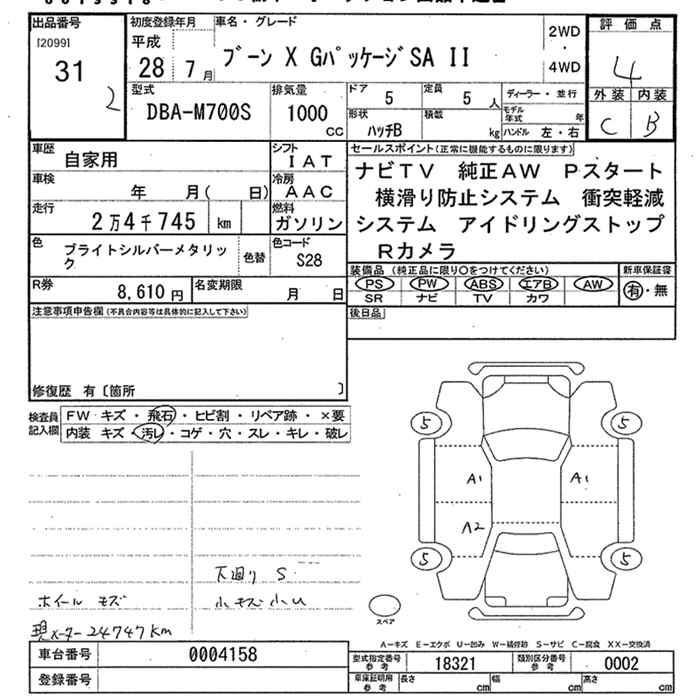 出品番号
[20991]
31
2
初度登録年月
平成
28年 7月
車名・グレード
ブーン X Gパッケージ SA II
2WD
・
4WD
評価点
4
外装 内装
C B
型式
DBA-M700S
排気量
1000
CC
ドア
5
定員
5 人
形状
ハッチB
積載
kg
ディーラー・並行
モデル年式 年
ハンドル 左・右
車歴
自家用
シフト
IAT
車検
年 月( 日)
冷房
AAC
走行
2万4千745 km
燃料
ガソリン
色
ブライトシルバーメタリック
色替
色コード
S28
R券
8,610円
名変期限
月 日
セールスポイント(正常に機能するものに限ります)
ナビTV 純正AW Pスタート
横滑り防止システム 衝突軽減
システム アイドリングストップ
Rカメラ
装備品(純正品に限り○をつけてください)
PS PW ABS エアB AW
SR ナビ TV カワ
新車保証書
有・無
後日品
注意事項申告欄(不具合内容等は具体的に記入して下さい)
修復歴 有〔箇所 〕
検査員記入欄
FW キズ・飛石・ヒビ割・リペア跡・×要
内装 キズ・汚レ・コゲ・穴・スレ・キレ・破レ
下廻り S
ホイール キズ
小キズ小U
現メーター24747km
5
5
A1
A1
A2
5
5
スペア
A-キズ E-エクボ U-凹み W-補修跡 S-サビ C-腐食 XX-交換済
車台番号
0004158
登録番号
型式指定番号参考
18321
類別区分番号参考
0002
車庫証明用参考
長さ cm
幅 cm
高さ cm